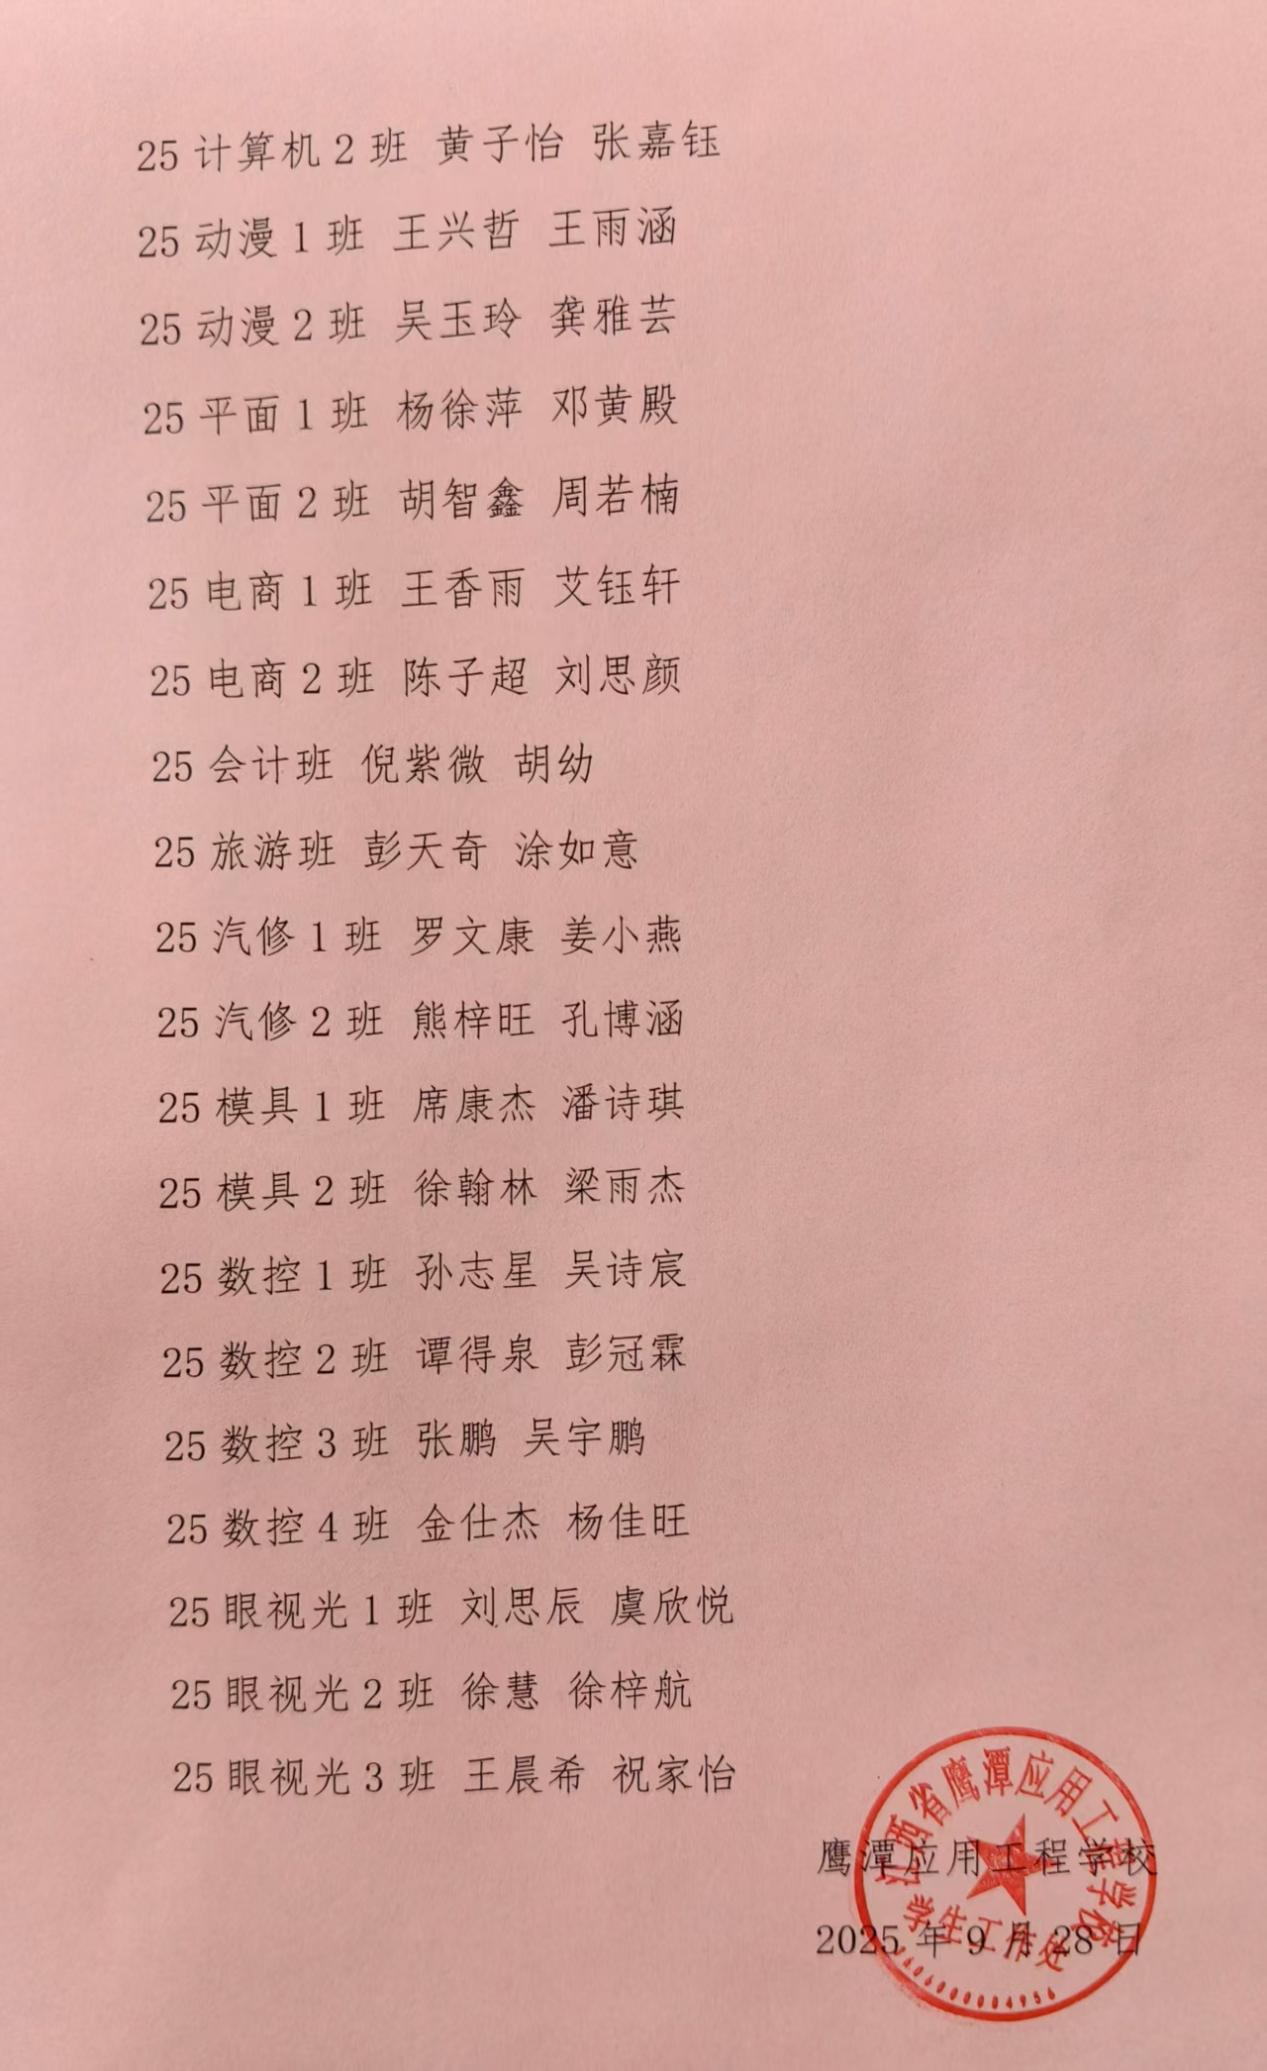 25 计算机 2 班 黄子怡 张嘉钰
25 动漫 1 班 王兴哲 王雨涵
25 动漫 2 班 吴玉玲 龚雅芸
25 平面 1 班 杨徐萍 邓黄殿
25 平面 2 班 胡智鑫 周若楠
25 电商 1 班 王香雨 艾钰轩
25 电商 2 班 陈子超 刘思颜
25 会计班 倪紫微 胡幼
25 旅游班 彭天奇 涂如意
25 汽修 1 班 罗文康 姜小燕
25 汽修 2 班 熊梓旺 孔博涵
25 模具 1 班 席康杰 潘诗琪
25 模具 2 班 徐翰林 梁雨杰
25 数控 1 班 孙志星 吴诗宸
25 数控 2 班 谭得泉 彭冠霖
25 数控 3 班 张鹏 吴宇鹏
25 数控 4 班 金仕杰 杨佳旺
25 眼视光 1 班 刘思辰 虞欣悦
25 眼视光 2 班 徐慧 徐梓航
25 眼视光 3 班 王晨希 祝家怡
鹰潭应用工程学校
2025 年 9 月 28 日
江西省鹰潭应用工程学校
学生工作处